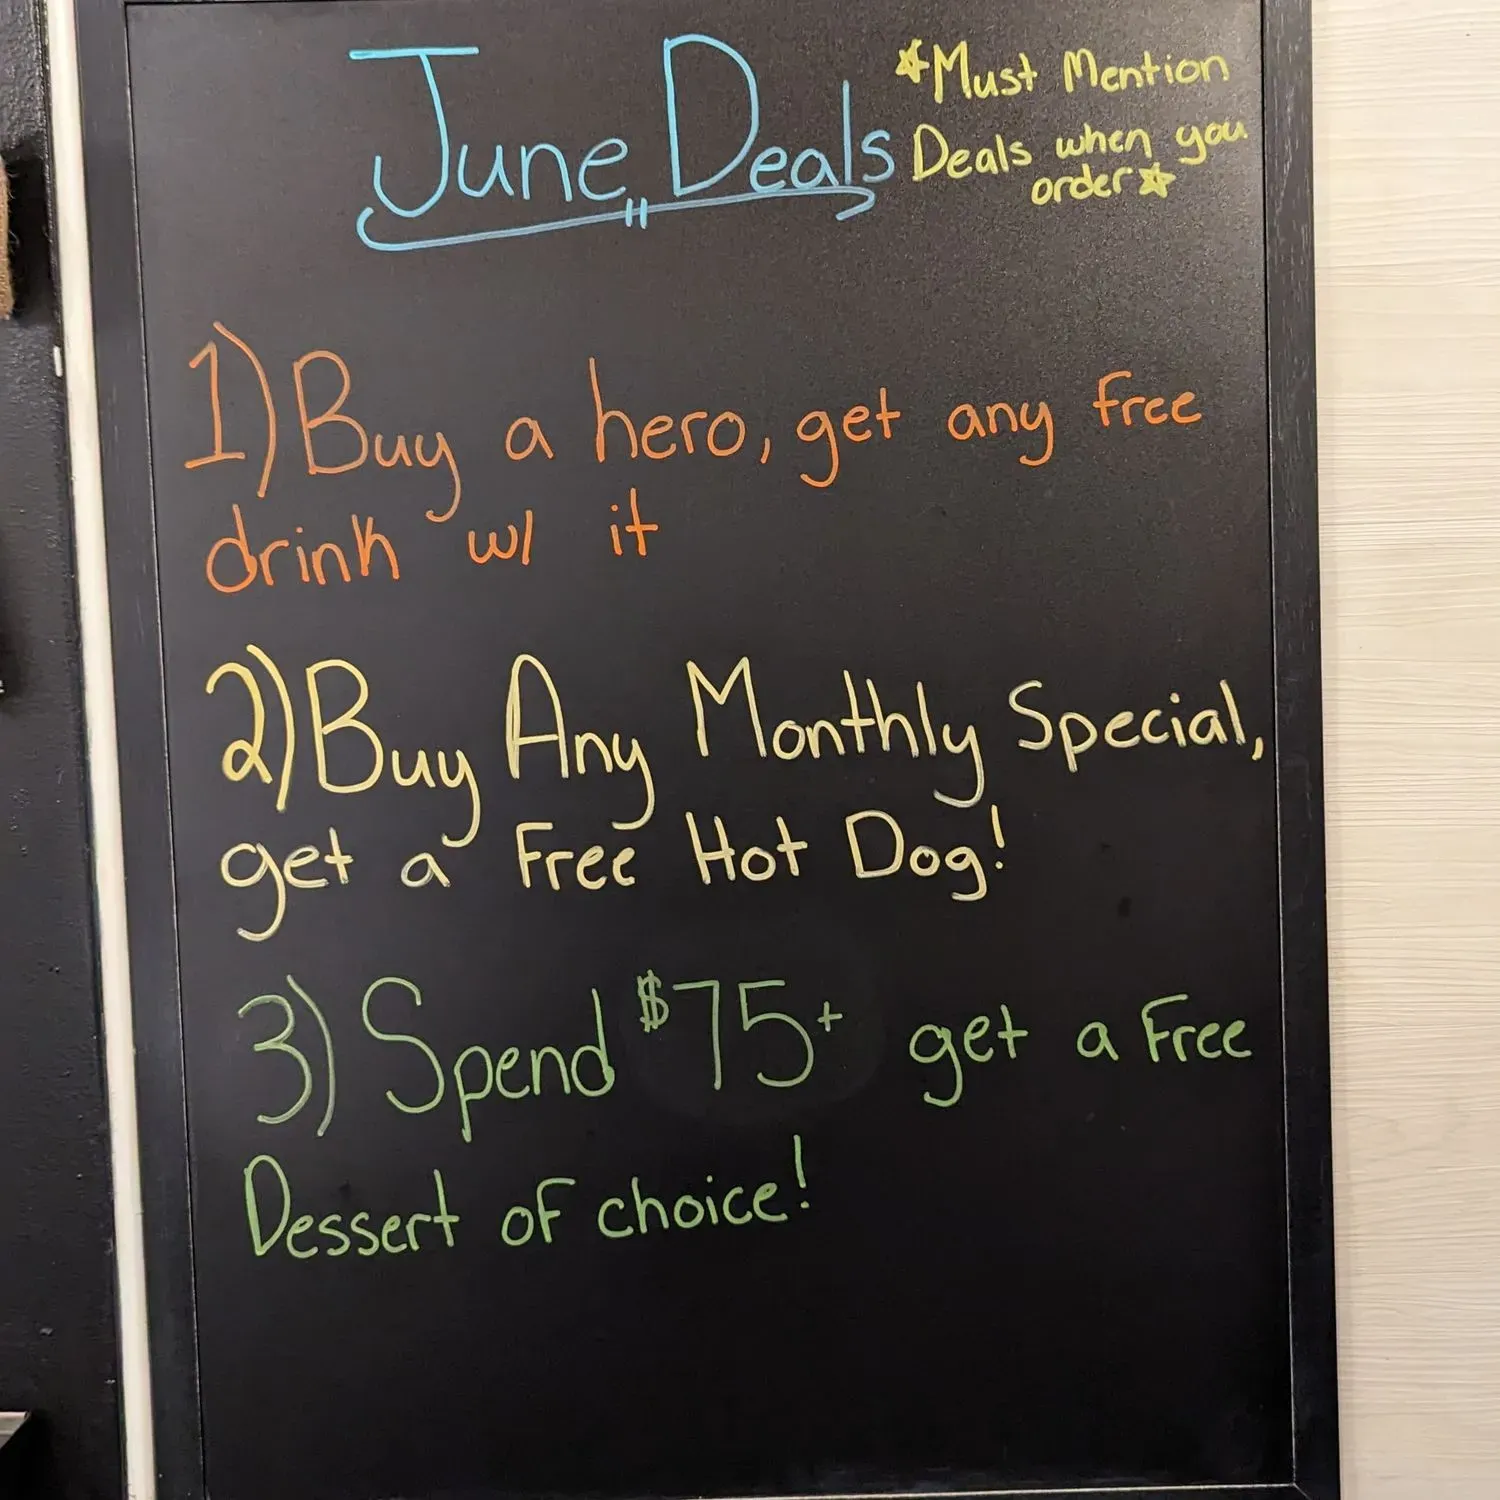 June Deals
*Must Mention
Deals when you
order*
1) Buy a hero, get any free
drink w/ it
2) Buy Any Monthly Special,
get a Free Hot Dog!
3) Spend $75+ get a Free
Dessert of choice!